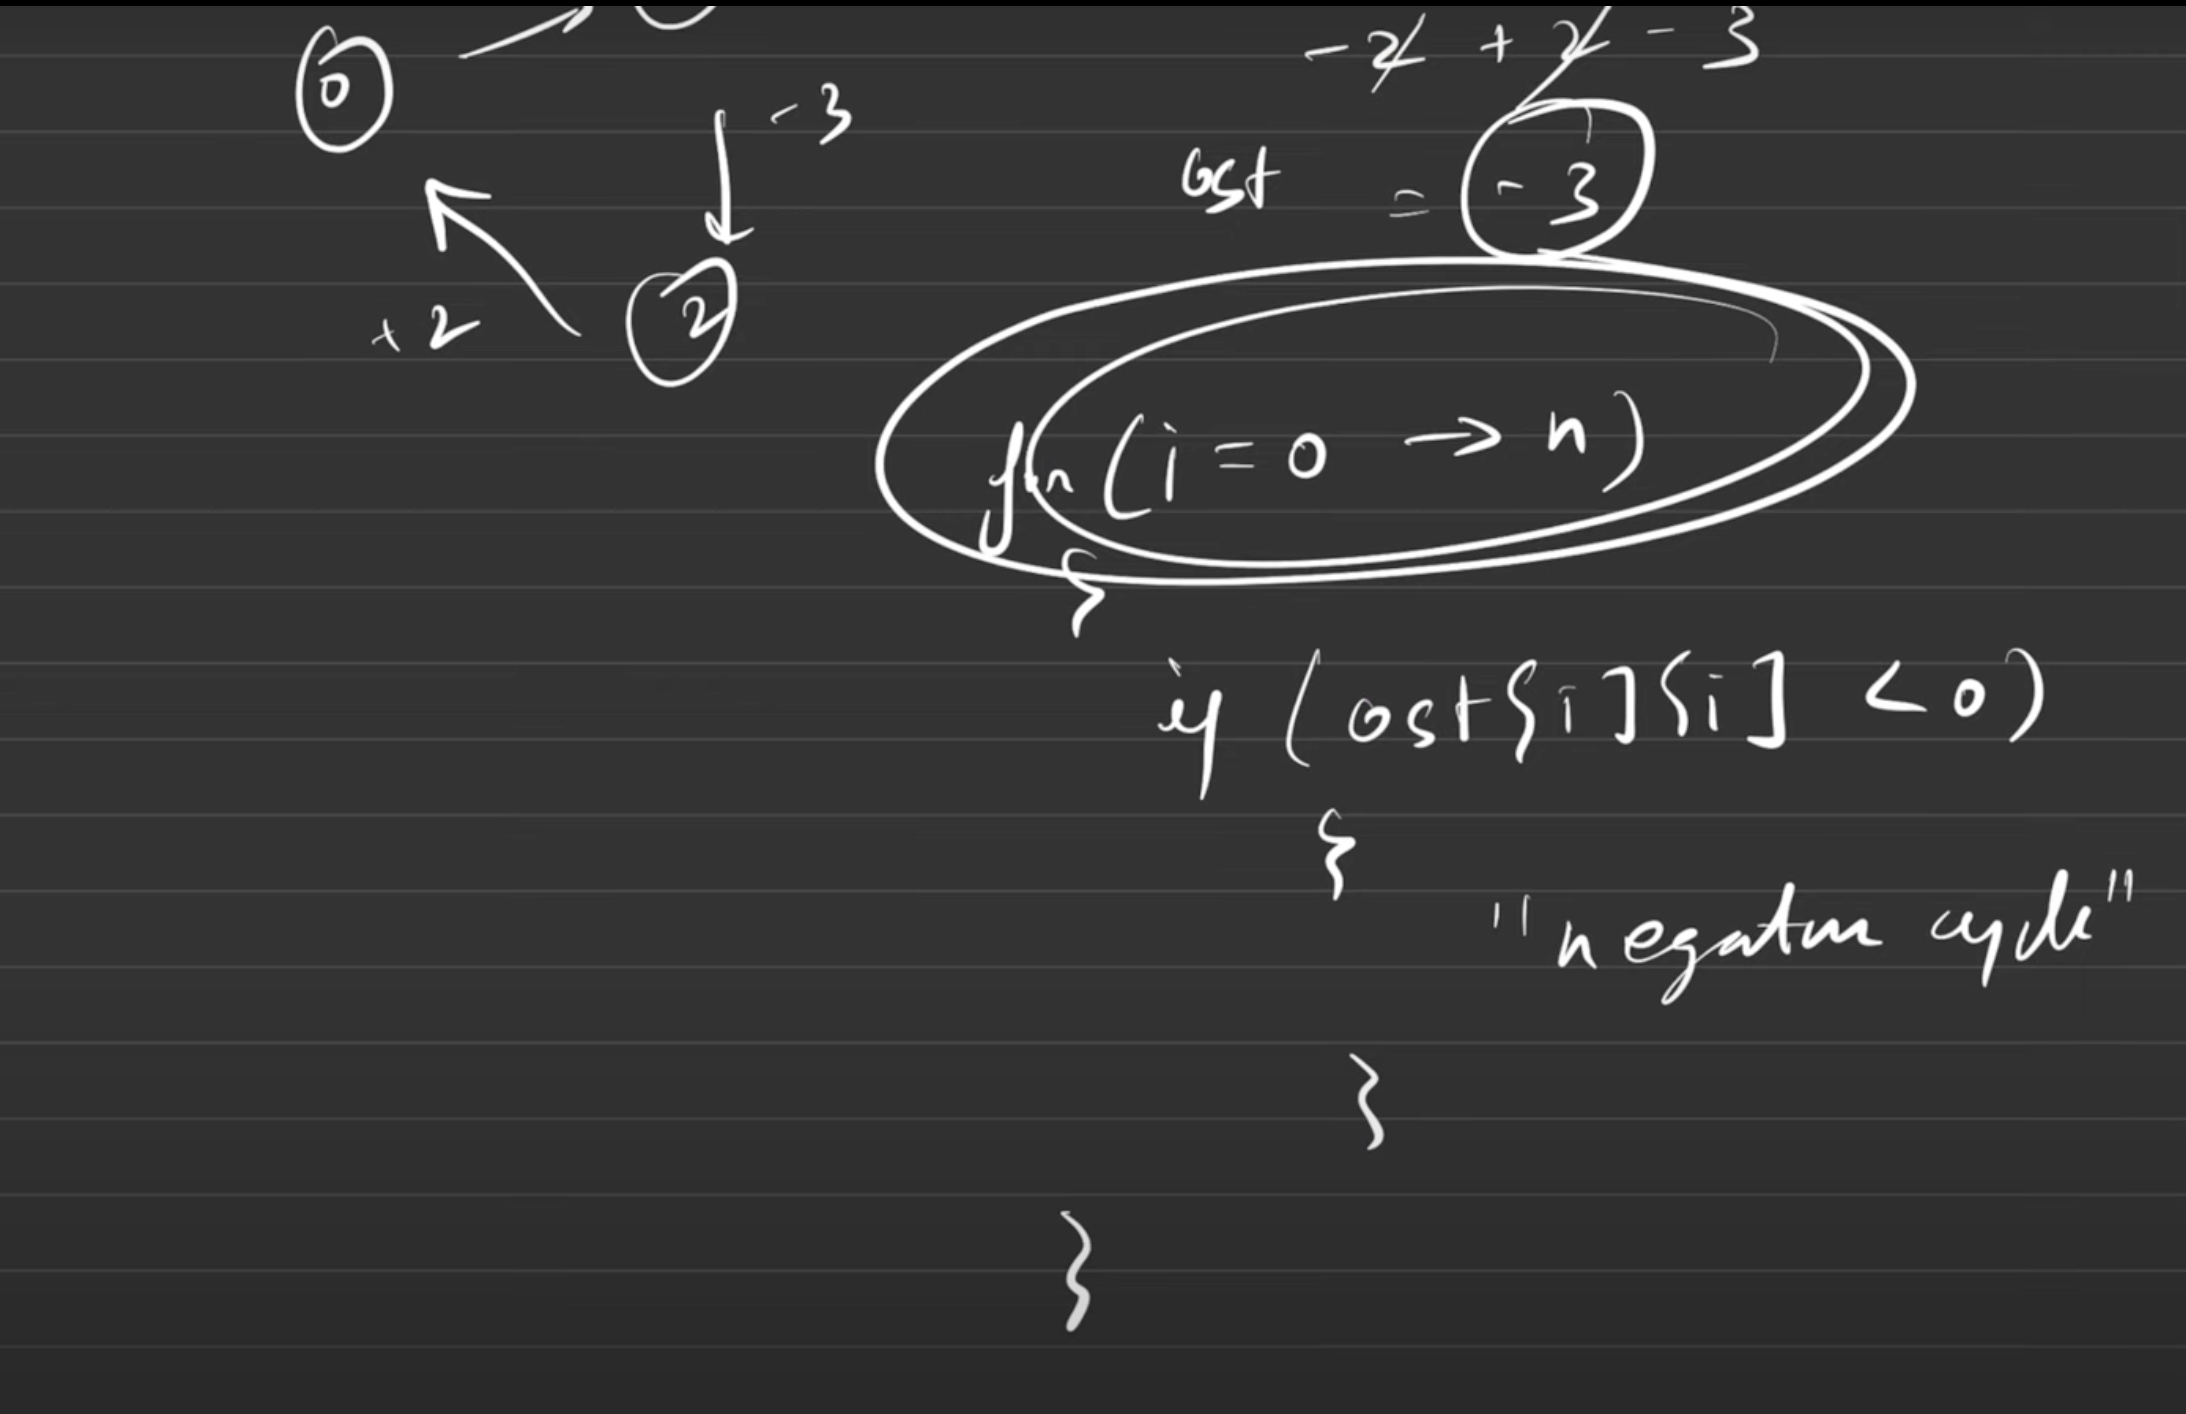 -2 + 2 - 3
0
-3
cost = -3
+2
2
for (i = 0 → n)
{
if (cost[i][i] < 0)
{
"negative cycle"
}
}